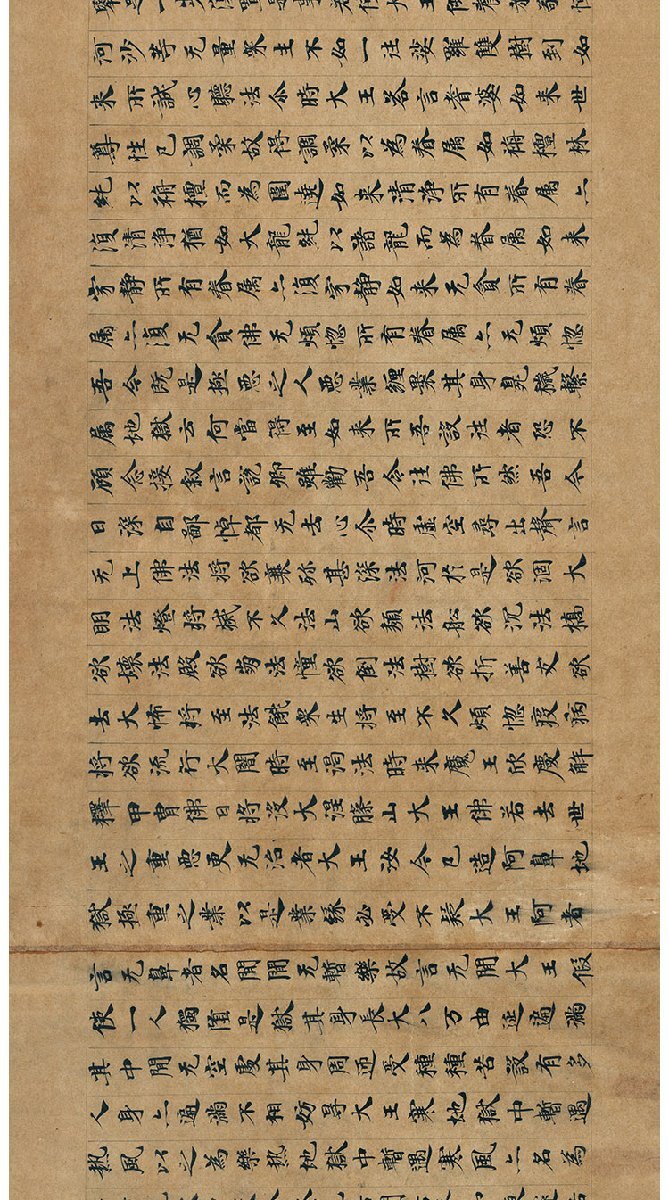 河沙等无量眾生不如一往娑羅雙樹到如
來所誠心聽法尒時大王荅言耆婆如來世
尊性已調柔故得調柔以為眷属如栴檀林
純以栴檀而為圍遶如來清淨所有眷属亦
復清淨猶如大龍純以諸龍而為眷属如來
寂靜所有眷属亦復寂靜如來无貪所有眷
属亦復无貪佛无煩惚所有眷属亦无煩惚
吾今既是極惡之人惡業纏裹其身臰穢繫
属地獄云何當得至如來所吾設往者恐不
顧念接叙言說卿雖勸吾令往佛所然吾今
日深自鄙悼都无去心尒時虛空尋出聲言
无上佛法將欲衰殄甚深法河於是欲涸大
明法燈將滅不久法山欲頹法舩欲沉法橋
欲壞法殿欲崩法幢欲倒法樹欲折善友欲
去大怖將至法餓眾生將至不久煩惚疫病
將欲流行大闇時至渴法時來魔王欣慶解
釋甲冑佛日將沒大涅槃山大王佛若去世
王之重惡更无治者大王汝今已造阿鼻地
獄極重之業以是業緣必受不疑大王阿者
言无鼻者名間間无暫樂故言无間大王假
使一人獨墮是獄其身長大八万由延遍滿
其中間无空處其身周迊受種種苦設有多
人身亦遍滿不相妨㝵大王寒地獄中暫遇
熱風以之為樂熱地獄中暫遇寒風亦名為